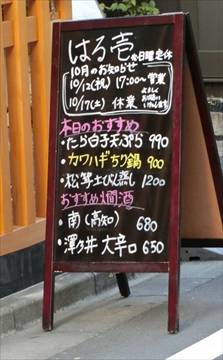 はる壱 日曜定休
10月のお知らせ
10/12(祝) 17:00〜営業
10/17(土) 休業
よろしく
お願い
いたします
本日のおすすめ
・たら白子天ぷら 990
・カワハギちり鍋 900
・松茸土びん蒸し 1200
おすすめ燗酒
・南(高知) 680
・澤乃井 大辛口 650